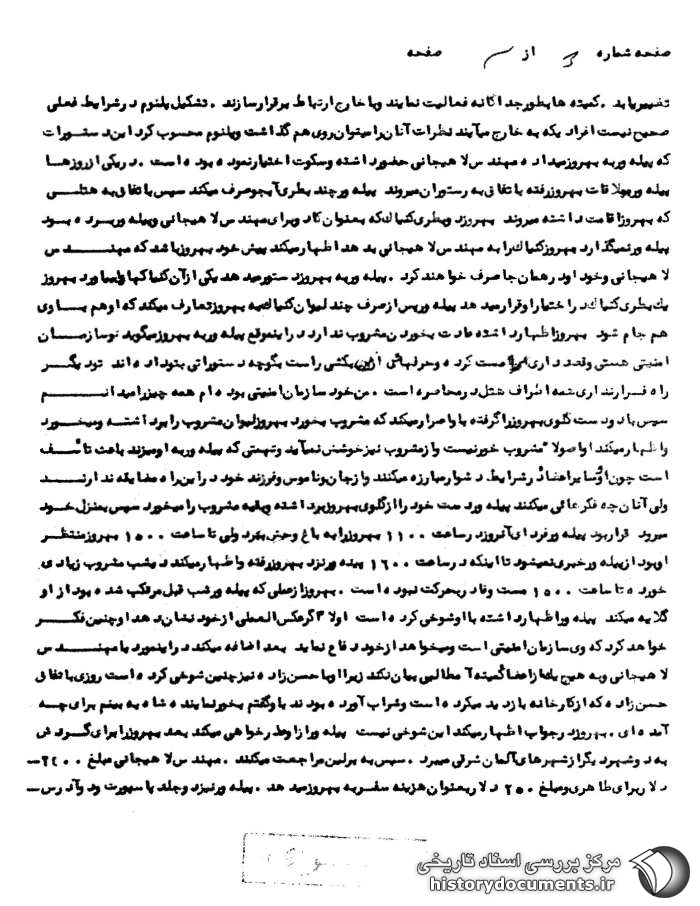 صفحه شماره از صفحه
تغییر یابد . کمیته ها بطور جداگانه فعالیت نمایند و با خارج ارتباط برقرار سازند . تشکیل پلنوم در شرایط فعلی
صحیح نیست افراد یکه به خارج میآیند نظرات آنان را میتوان روی هم گذاشت و پلنوم محسوب کرد این دستورات
که پیله ور به بهروز میداده مهندس لاهیجانی حضور داشته و سکوت اختیار نموده بوده است . در یکی از روزها
پیله ور بملاقات بهروز رفته باتفاق به رستوران میروند پیله ور چند بطری آبجو صرف میکند سپس باتفاق به هتلی
که بهروز اقامت داشته میروند بهروز دو بطری کنیاک که بعنوان کادو برای مهندس لاهیجانی و پیله ور برده بود
پیله ور نمیگذارد بهروز کنیاک را به مهندس لاهیجانی بدهد اظهار میکند پیش خود بهروز باشد که مهندس
لاهیجانی و خود او در همان جا صرف خواهند کرد . پیله ور به بهروز دستور میدهد یکی از آن کنیاکها را بیاورد بهروز
یک بطری کنیاک در اختیار او قرار میدهد پیله ور پس از صرف چند لیوان کنیاک به بهروز تعارف میکند که او هم با وی
هم جام شود بهروز اظهار داشته عادت بخوردن مشروب ندارد در این موقع پیله ور به بهروز میگوید تو سازمان
امنیتی هستی و قصد داری مرا مست کرده و حرفهائی از من بکشی راست بگو چه دستوراتی بتو داده اند تو دیگر
راه فرار نداری همه اطراف هتل در محاصره است . من خود سازمان امنیتی بوده ام همه چیز را میدانم
سپس با دو دست گلوی بهروز را گرفته با و اصرار میکند که مشروب بخورد بهروز لیوان مشروب را برداشته و میخورد
و اظهار میکند او اصولا مشروب خور نیست و از مشروب نیز خوشش نمیآید و تهمتی که پیله ور به او میزند باعث تأسف
است چون او و سایر اعضاء در شرایط دشوار مبارزه میکنند و از جان و ناموس و فرزند خود در این راه مضایقه ندارند
ولی آنان چه فکرهائی میکنند پیله ور دست خود را از گلوی بهروز برداشته و بقیه مشروب را میخورد سپس بمنزل خود
میرود قرار بود پیله ور فردای آنروز در ساعت ۱۱۰۰ بهروز را به باغ وحش ببرد ولی تا ساعت ۱۵۰۰ بهروز منتظر
او بود از پیله ور خبری نمیشود تا اینکه در ساعت ۱۶۰۰ پیله ور نزد بهروز رفته و اظهار میکند دیشب مشروب زیادی
خورده تا ساعت ۱۵۰۰ مست و قادر بحرکت نبوده است . بهروز از عملی که پیله ور شب قبل مرتکب شده بود از او
گلایه میکند پیله ور اظهار داشته با او شوخی کرده است اولا اگر عکس العملی از خود نشان دهد او چنین فکر
خواهد کرد که وی سازمان امنیتی است و میخواهد از خود دفاع نماید بعد اضافه میکند در اینمورد با مهندس
لاهیجانی و به هیچ یک از اعضا کمیته آ مطالبی بیان نکند زیرا او با حسن زاده نیز چنین شوخی کرده است روزی باتفاق
حسن زاده که از کارخانه بازدید میکرده است و شراب آورده بودند با و گفتم بخور نماینده شاه به بینم برای چه
آمده ای . بهروز در جواب اظهار میکند این شوخی نیست پیله ور از او عذر خواهی میکند بعد بهروز را برای گردش
به دو شهر دیگر از شهرهای آلمان شرقی میبرد . سپس به برلین مراجعت میکنند . مهندس لاهیجانی مبلغ ۲۴۰۰ -
دلار برای طاهری و مبلغ ۲۵۰ دلار بعنوان هزینه سفر به بهروز میدهد . پیله ور نیز دو جلد پاسپورت و دو آدرس -
مرکز بررسی اسناد تاریخی
historydocuments.ir